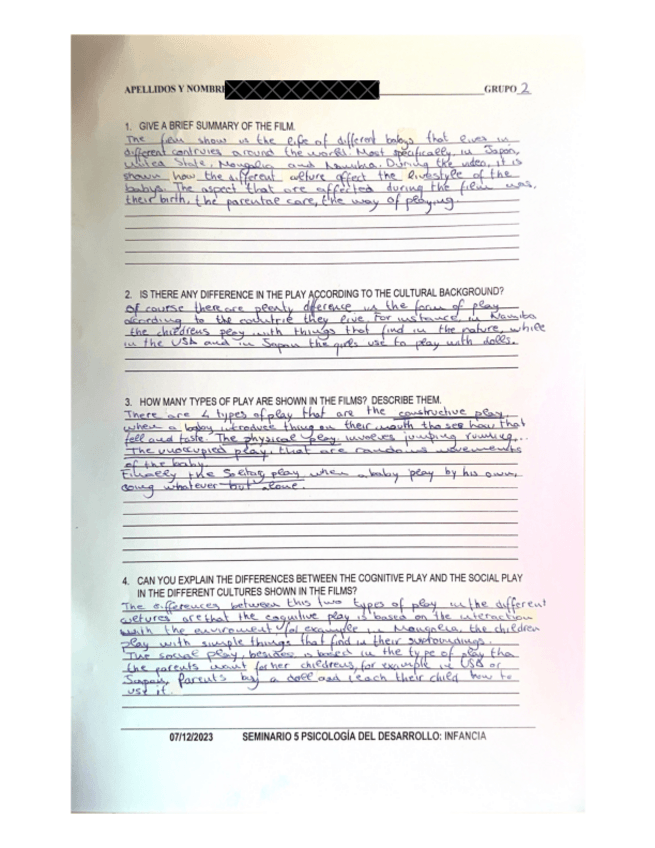 APELLIDOS Y NOMBRE GRUPO 2
1. GIVE A BRIEF SUMMARY OF THE FILM.
The film show us the life of different babys that lives in
different contruies around the world. Most specifically in Japan,
United State, Mongolia and Namibia. During the video, it is
shown how the different culture affect the livestyle of the
babys. The aspect that are affected during the film was,
their birth, the parental care, the way of playing.
2. IS THERE ANY DIFFERENCE IN THE PLAY ACCORDING TO THE CULTURAL BACKGROUND?
Of course there are plenty diference in the form of play
according to the contrie they live. For instance, in Namiba
the childrens play with things that find in the nature, while
in the USA and in Japan the girls use to play with dolls.
3. HOW MANY TYPES OF PLAY ARE SHOWN IN THE FILMS? DESCRIBE THEM.
There are 4 types of play that are the constructive play,
when a baby introduce things on their mouth to see how that
fell and taste. The physical play involves jumping running,...
The unoccupied play, that are randoms movements
of the baby.
Finally the Solitary play when a baby play by his own,
doing whatever but alone.
4. CAN YOU EXPLAIN THE DIFFERENCES BETWEEN THE COGNITIVE PLAY AND THE SOCIAL PLAY
IN THE DIFFERENT CULTURES SHOWN IN THE FILMS?
The differences between this two types of play in the different
cultures are that the cognitive play is based on the interaction
with the enviroment, for example in Mongolia, the children
play with simple things that find in their surroundings.
The social play, besides is based in the type of play tha
the parents want for her childrens, for example in USA or
Japan, parents buy a doll and teach their child how to
use it.
07/12/2023 SEMINARIO 5 PSICOLOGÍA DEL DESARROLLO: INFANCIA